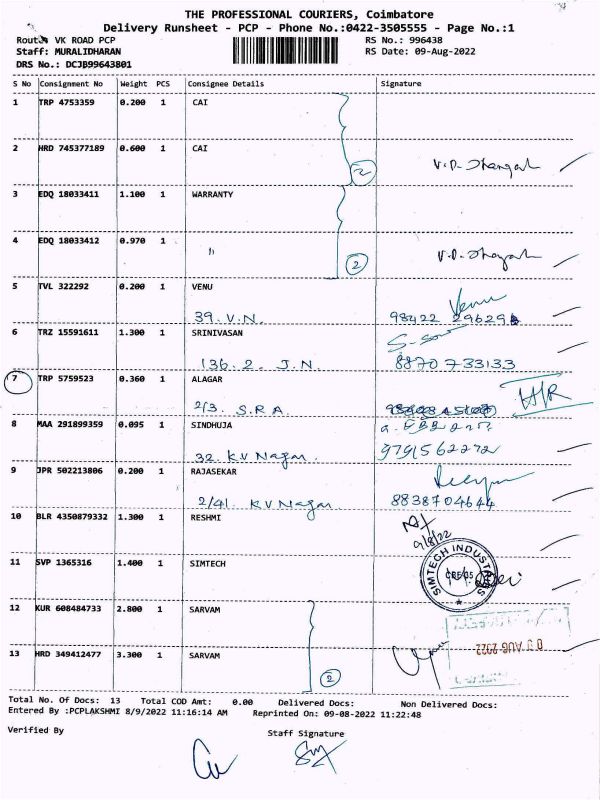 THE PROFESSIONAL COURIERS, Coimbatore
Delivery Runsheet - PCP - Phone No.:0422-3505555 - Page No.:1
Route VK ROAD PCP
RS No.: 996438
Staff: MURALIDHARAN
RS Date: 09-Aug-2022
DRS No.: DCJB99643801
S No Consignment No Weight PCS Consignee Details Signature
1 TRP 4753359 0.200 1 CAI
2 HRD 745377189 0.600 1 CAI
2
3 EDQ 18033411 1.100 1 WARRANTY
4 EDQ 18033412 0.970 1 "
2
5 TVL 322292 0.200 1 VENU
Venu
39. V.N.
6 TRZ 15591611 1.300 1 SRINIVASAN
136. 2. J.N. 8870733133
7 TRP 5759523 0.360 1 ALAGAR
2/3. S.R.A
8 MAA 291899359 0.095 1 SINDHUJA
32. KV Nagar. 9791562272
9 JPR 502213806 0.200 1 RAJASEKAR
2/41. KV Nagar. 8838704644
10 BLR 4350879332 1.300 1 RESHMI
9/8/22
11 SVP 1365316 1.400 1 SIMTECH
SIMTECH INDUSTRIES
12 KUR 608484733 2.800 1 SARVAM
09 AUG 2022
13 HRD 349412477 3.300 1 SARVAM
2
Total No. Of Docs: 13 Total COD Amt: 0.00 Delivered Docs: Non Delivered Docs:
Entered By :PCPLAKSHMI 8/9/2022 11:16:14 AM Reprinted On: 09-08-2022 11:22:48
Verified By Staff Signature